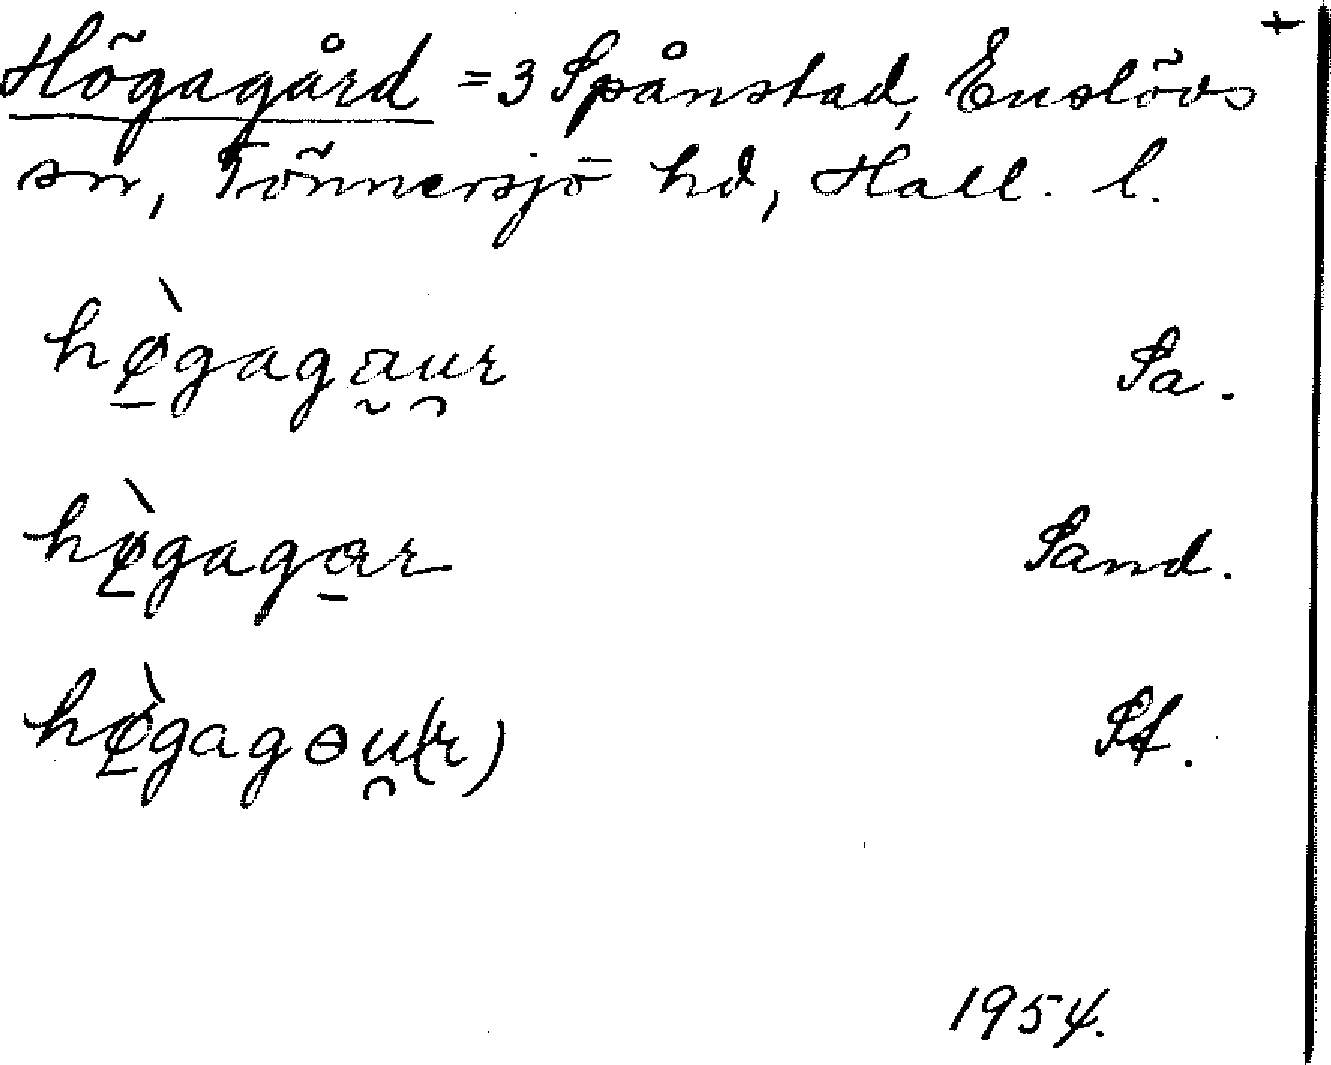 +
Högagård = 3 Spånstad, Enslövs
sn, Tönnersjö hd, Hall. l.
hø̠̀gaga̰u̯r Sa.
hø̠̀gaga̠r Sand.
hø̠̀gagɵu̯(r) Sf.
1954.